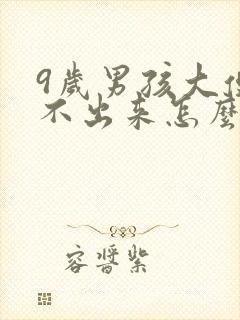 9歲男孩大便
不出来怎麽
容醬紫